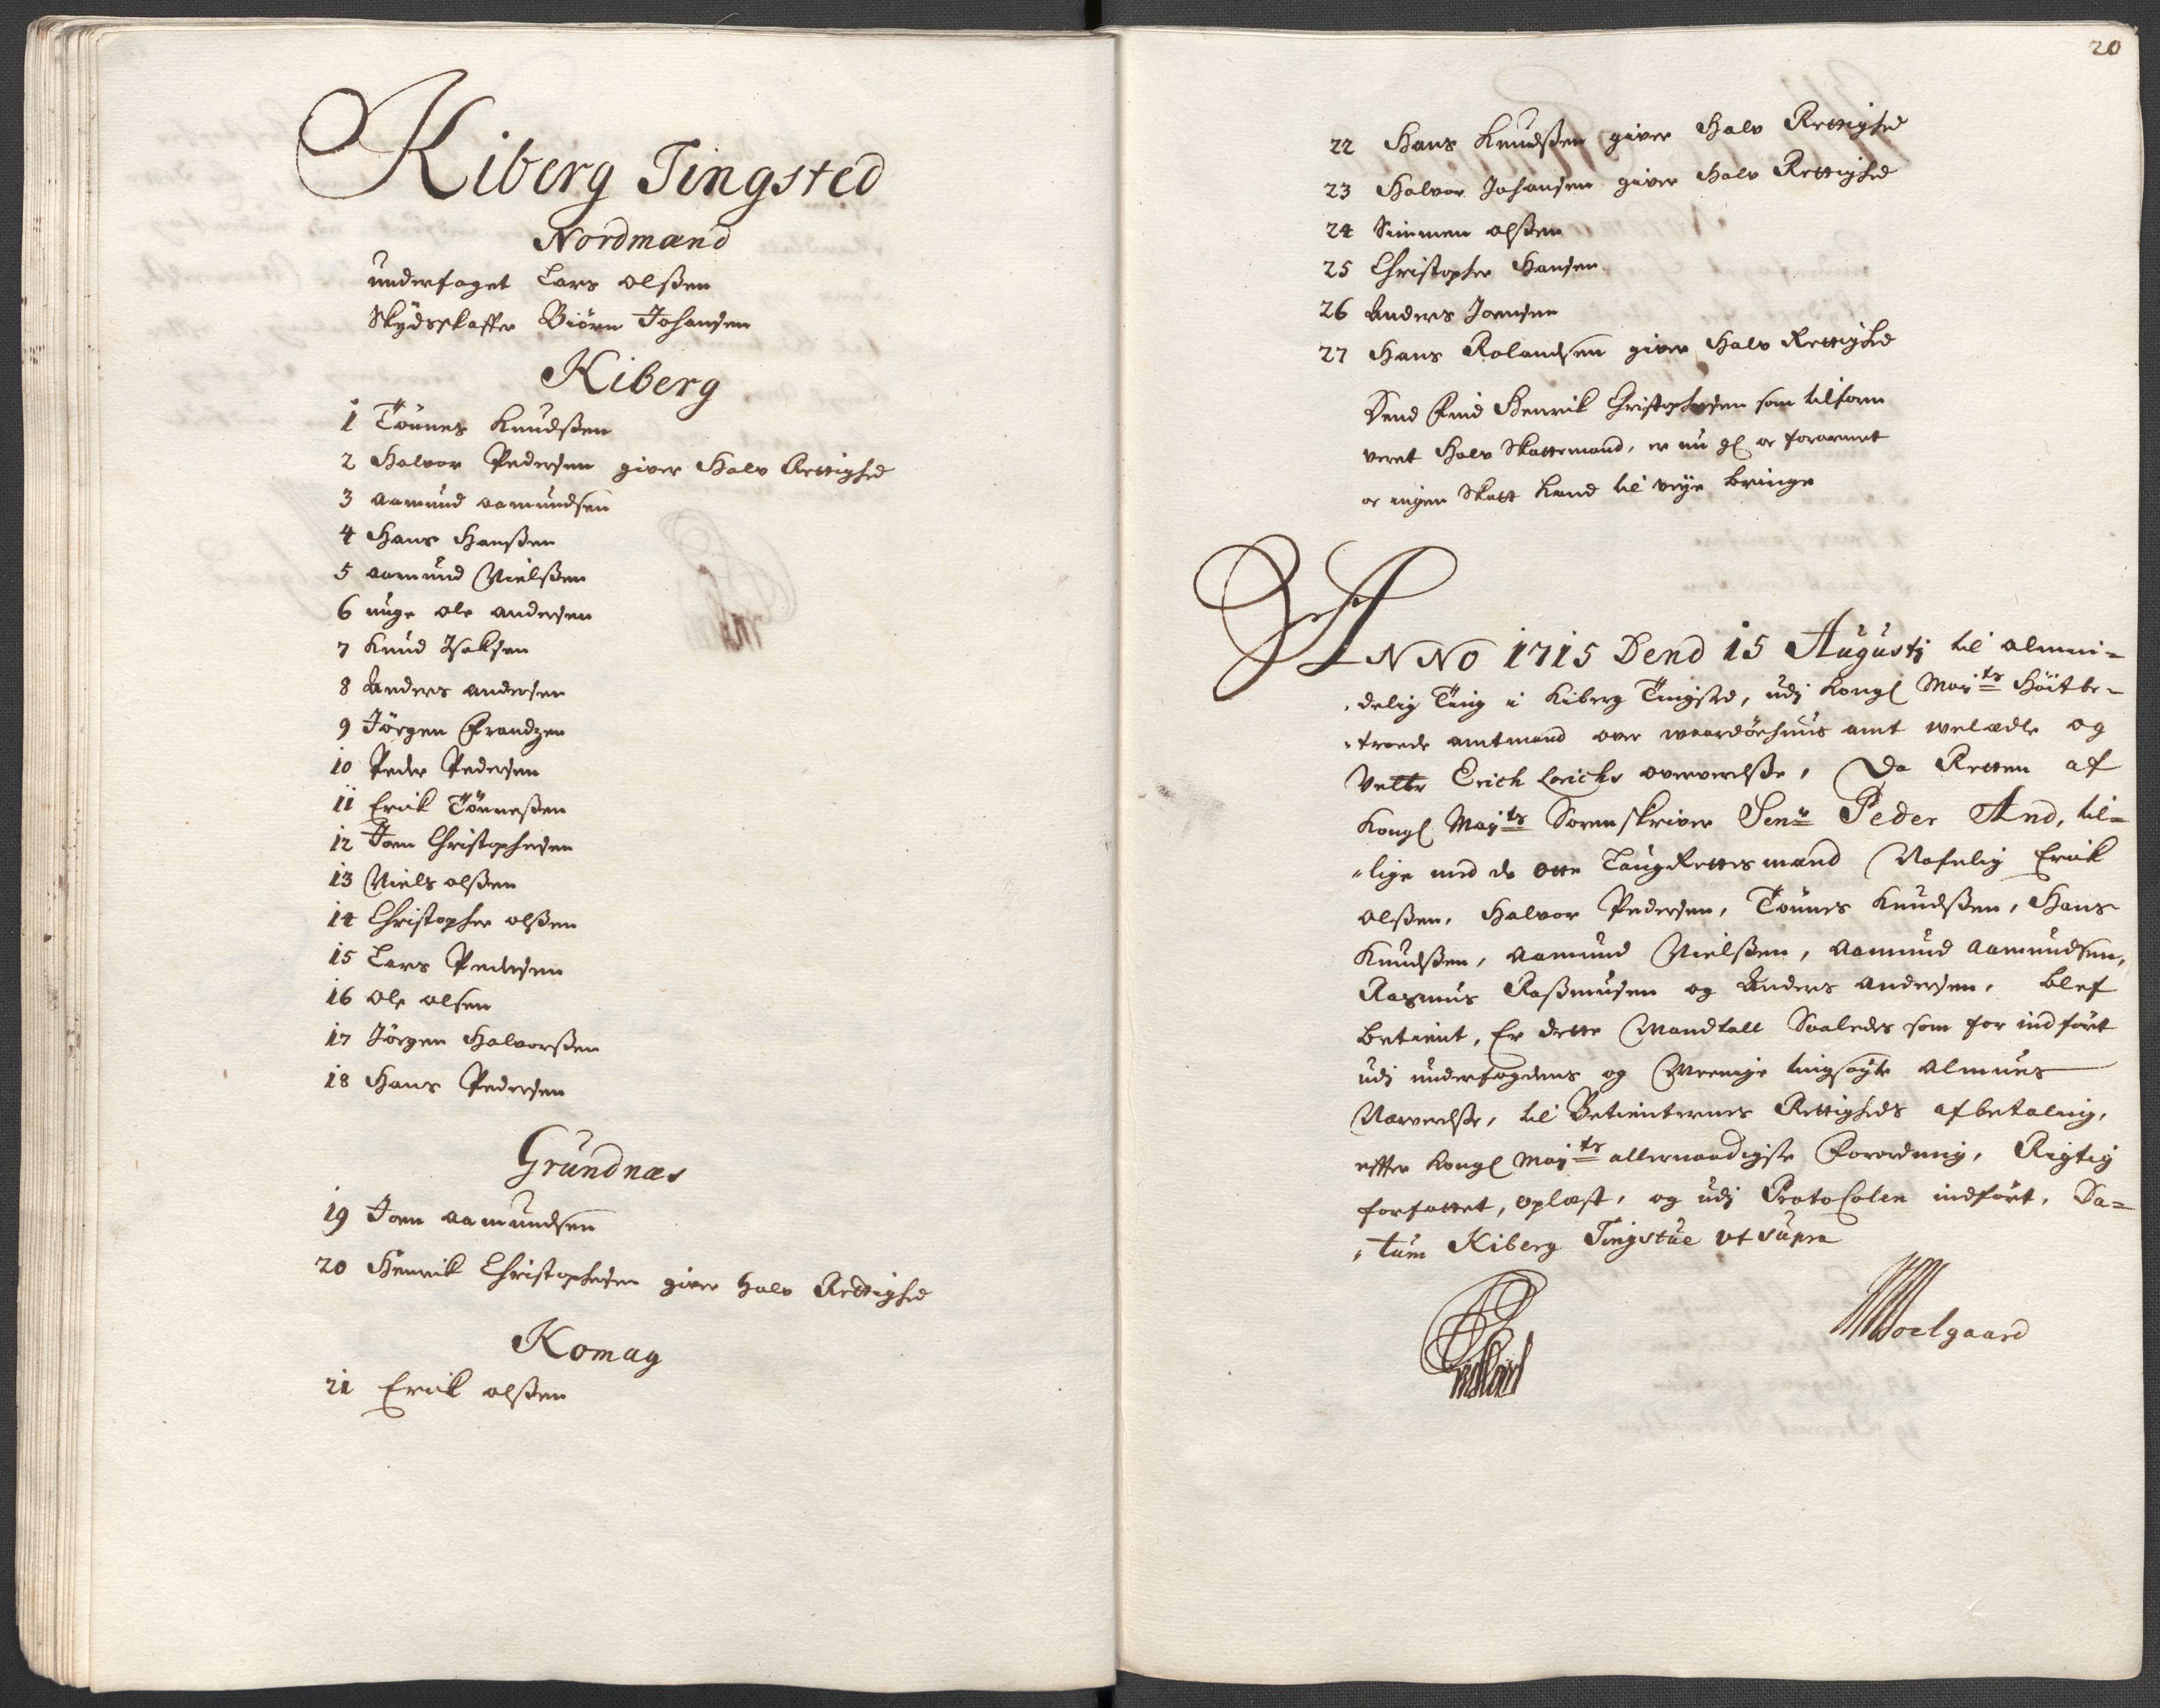 Kiberg Tingsted
Nordmænd
underfoget Lars olßen
Skydsskaffer Biörn Johansen
Kiberg
1 Tönnes Knudßen
2 Halvor Pedersen giver Halv Rettighed
3 aamund aamundsen
4 Hans Hanßen
5 aamund Nielßen
6 unge ole andersen
7 Knud Isaksen
8 Anders andersen
9 Jörgen Frandzen
10 Peder Pedersen
11 Erik Tönneßen
12 Joen Christophersen
13 Niels olßen
14 Christopher olßen
15 Lars Pedersen
16 ole olsen
17 Jörgen Halvorßen
18 Hans Pedersen
Grundnæs
19 Joen aamundsen
20 Henrik Christophersen giver halv Rettighed
Komag
21 Erick olßen
20
22 Hans Knudßen giver Halv Rettighed
23 Halvor Johansen giver Halv Rettighed
24 Simmen olßen
25 Christopher Hansen
26 Anders Joensen
27 Hans Rolandsen giver Halv Rettighed
Dend Find Henrik Christophersen som tilforn
veret Halv Skattemand, er nu gl oc forarmet
oc ingen Skatt kand til veye bringe
ANNO 1715 Dend 15 Augustj til almin=
delig Ting i Kiberg Tingsted, udj Kongl Mayts Höitbe=
troede amtmand over waardöehuus amt welædle og
Velbr Erich Lorichs oververelße, Da Retten af
Kongl Mayts Sorenskriver Senr Peder And, til=
lige med de otte LaugRettes mænd Nafnlig Erik
olßen, Halvor Pedersen, Tönnes Knudßen, Hans
Knudßen, Aamund Nielßen, Aamund Aamundsen,
Rasmus Raßmusen og Anders andersen, blef
betient, Er dette Mandtall Saaledes som for indfört
udj underfogdens og Meenige tingsøgte Almues
Nærverelße, til Betienternes Rettigheds afbetaling,
effter Kongl Mayts allernaadigste Forordning, Rigtig
forfattet, oplæst, og udj Protocolen indfört, Da=
tum Kiberg Tingstue vt supra
Woelgaard